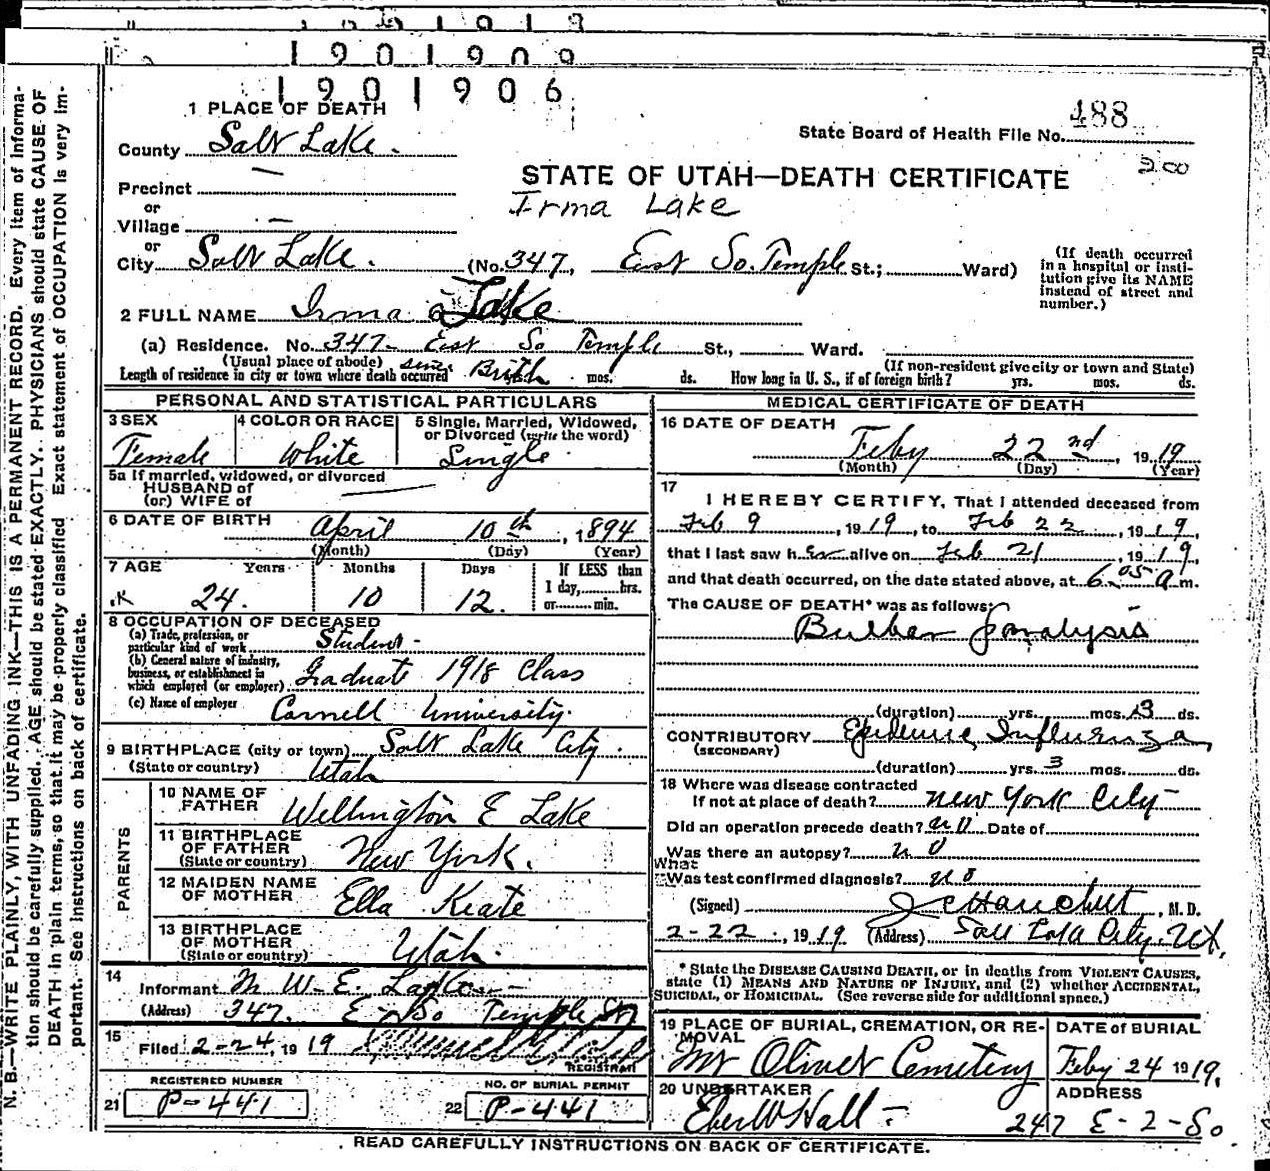 1901909
1901906
1 PLACE OF DEATH
County Salt Lake.
State Board of Health File No. 488
200
STATE OF UTAH—DEATH CERTIFICATE
Irma Lake
Precinct —
or
Village —
or
City Salt Lake. (No. 347, East So. Temple St.; Ward)
(If death occurred in a hospital or institution give its NAME instead of street and number.)
2 FULL NAME Irma Lake
(a) Residence. No. 347- East So Temple St., Ward.
(Usual place of abode) (If non-resident give city or town and State)
Length of residence in city or town where death occurred since Birth mos. ds. How long in U. S., if of foreign birth? yrs. mos. ds.
PERSONAL AND STATISTICAL PARTICULARS
3 SEX Female
4 COLOR OR RACE White
5 Single, Married, Widowed, or Divorced (write the word) Single
5a If married, widowed, or divorced
HUSBAND of
(or) WIFE of
6 DATE OF BIRTH April 10th, 1894
(Month) (Day) (Year)
7 AGE Years Months Days If LESS than 1 day, hrs. or min.
24. 10 12.
8 OCCUPATION OF DECEASED
(a) Trade, profession, or particular kind of work Student -
(b) General nature of industry, business, or establishment in which employed (or employer) Graduate 1918 Class
(c) Name of employer Cornell University.
9 BIRTHPLACE (city or town) Salt Lake City.
(State or country) Utah
PARENTS
10 NAME OF FATHER Wellington E Lake
11 BIRTHPLACE OF FATHER (State or country) New York.
12 MAIDEN NAME OF MOTHER Ella Keate
13 BIRTHPLACE OF MOTHER (State or country) Utah.
14
Informant W. E. Lake
(Address) 347. E So Temple St
15
Filed 2-24, 1919
REGISTRAR
REGISTERED NUMBER
21 P-441
NO. OF BURIAL PERMIT
22 P-441
MEDICAL CERTIFICATE OF DEATH
16 DATE OF DEATH
Feby 22nd, 1919
(Month) (Day) (Year)
17
I HEREBY CERTIFY, That I attended deceased from
Feb 9, 1919, to Feb 22, 1919,
that I last saw her alive on Feb 21, 1919,
and that death occurred, on the date stated above, at 6:05 a m.
The CAUSE OF DEATH* was as follows:
Bulbar paralysis
(duration) yrs. mos. 13 ds.
CONTRIBUTORY Epidemic Influenza
(SECONDARY)
(duration) yrs. 3 mos. ds.
18 Where was disease contracted
If not at place of death? New York City
Did an operation precede death? no Date of
Was there an autopsy? no
What
Was test confirmed diagnosis? no
(Signed) , M. D.
2-22, 1919 (Address) Salt Lake City. Ut,
* State the DISEASE CAUSING DEATH, or in deaths from VIOLENT CAUSES,
state (1) MEANS AND NATURE OF INJURY, and (2) whether ACCIDENTAL,
SUICIDAL, or HOMICIDAL. (See reverse side for additional space.)
19 PLACE OF BURIAL, CREMATION, OR REMOVAL
Mt Olivet Cemetery
DATE of BURIAL
Feby 24 1919,
20 UNDERTAKER
Eber W Hall -
ADDRESS
247 E-2-So.
. READ CAREFULLY INSTRUCTIONS ON BACK OF CERTIFICATE.
N. B.—WRITE PLAINLY, WITH UNFADING INK—THIS IS A PERMANENT RECORD. Every item of information should be carefully supplied. AGE should be stated EXACTLY. PHYSICIANS should state CAUSE OF DEATH in plain terms, so that it may be properly classified. Exact statement of OCCUPATION is very important. See instructions on back of certificate.